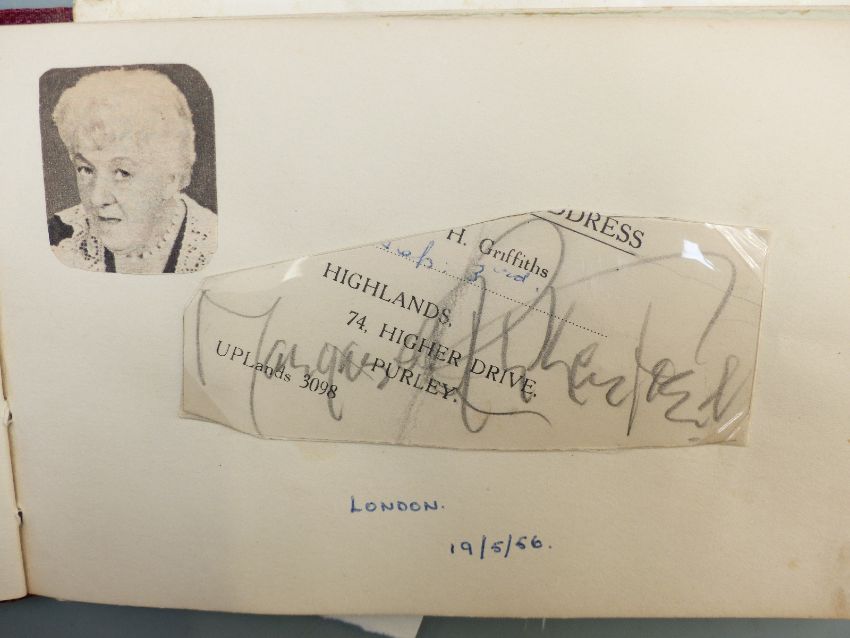 DDRESS
H. Griffiths
3rd.
HIGHLANDS,
74, HIGHER DRIVE,
PURLEY.
UPLands 3098
Margaret Rutherford
LONDON.
19/5/56.